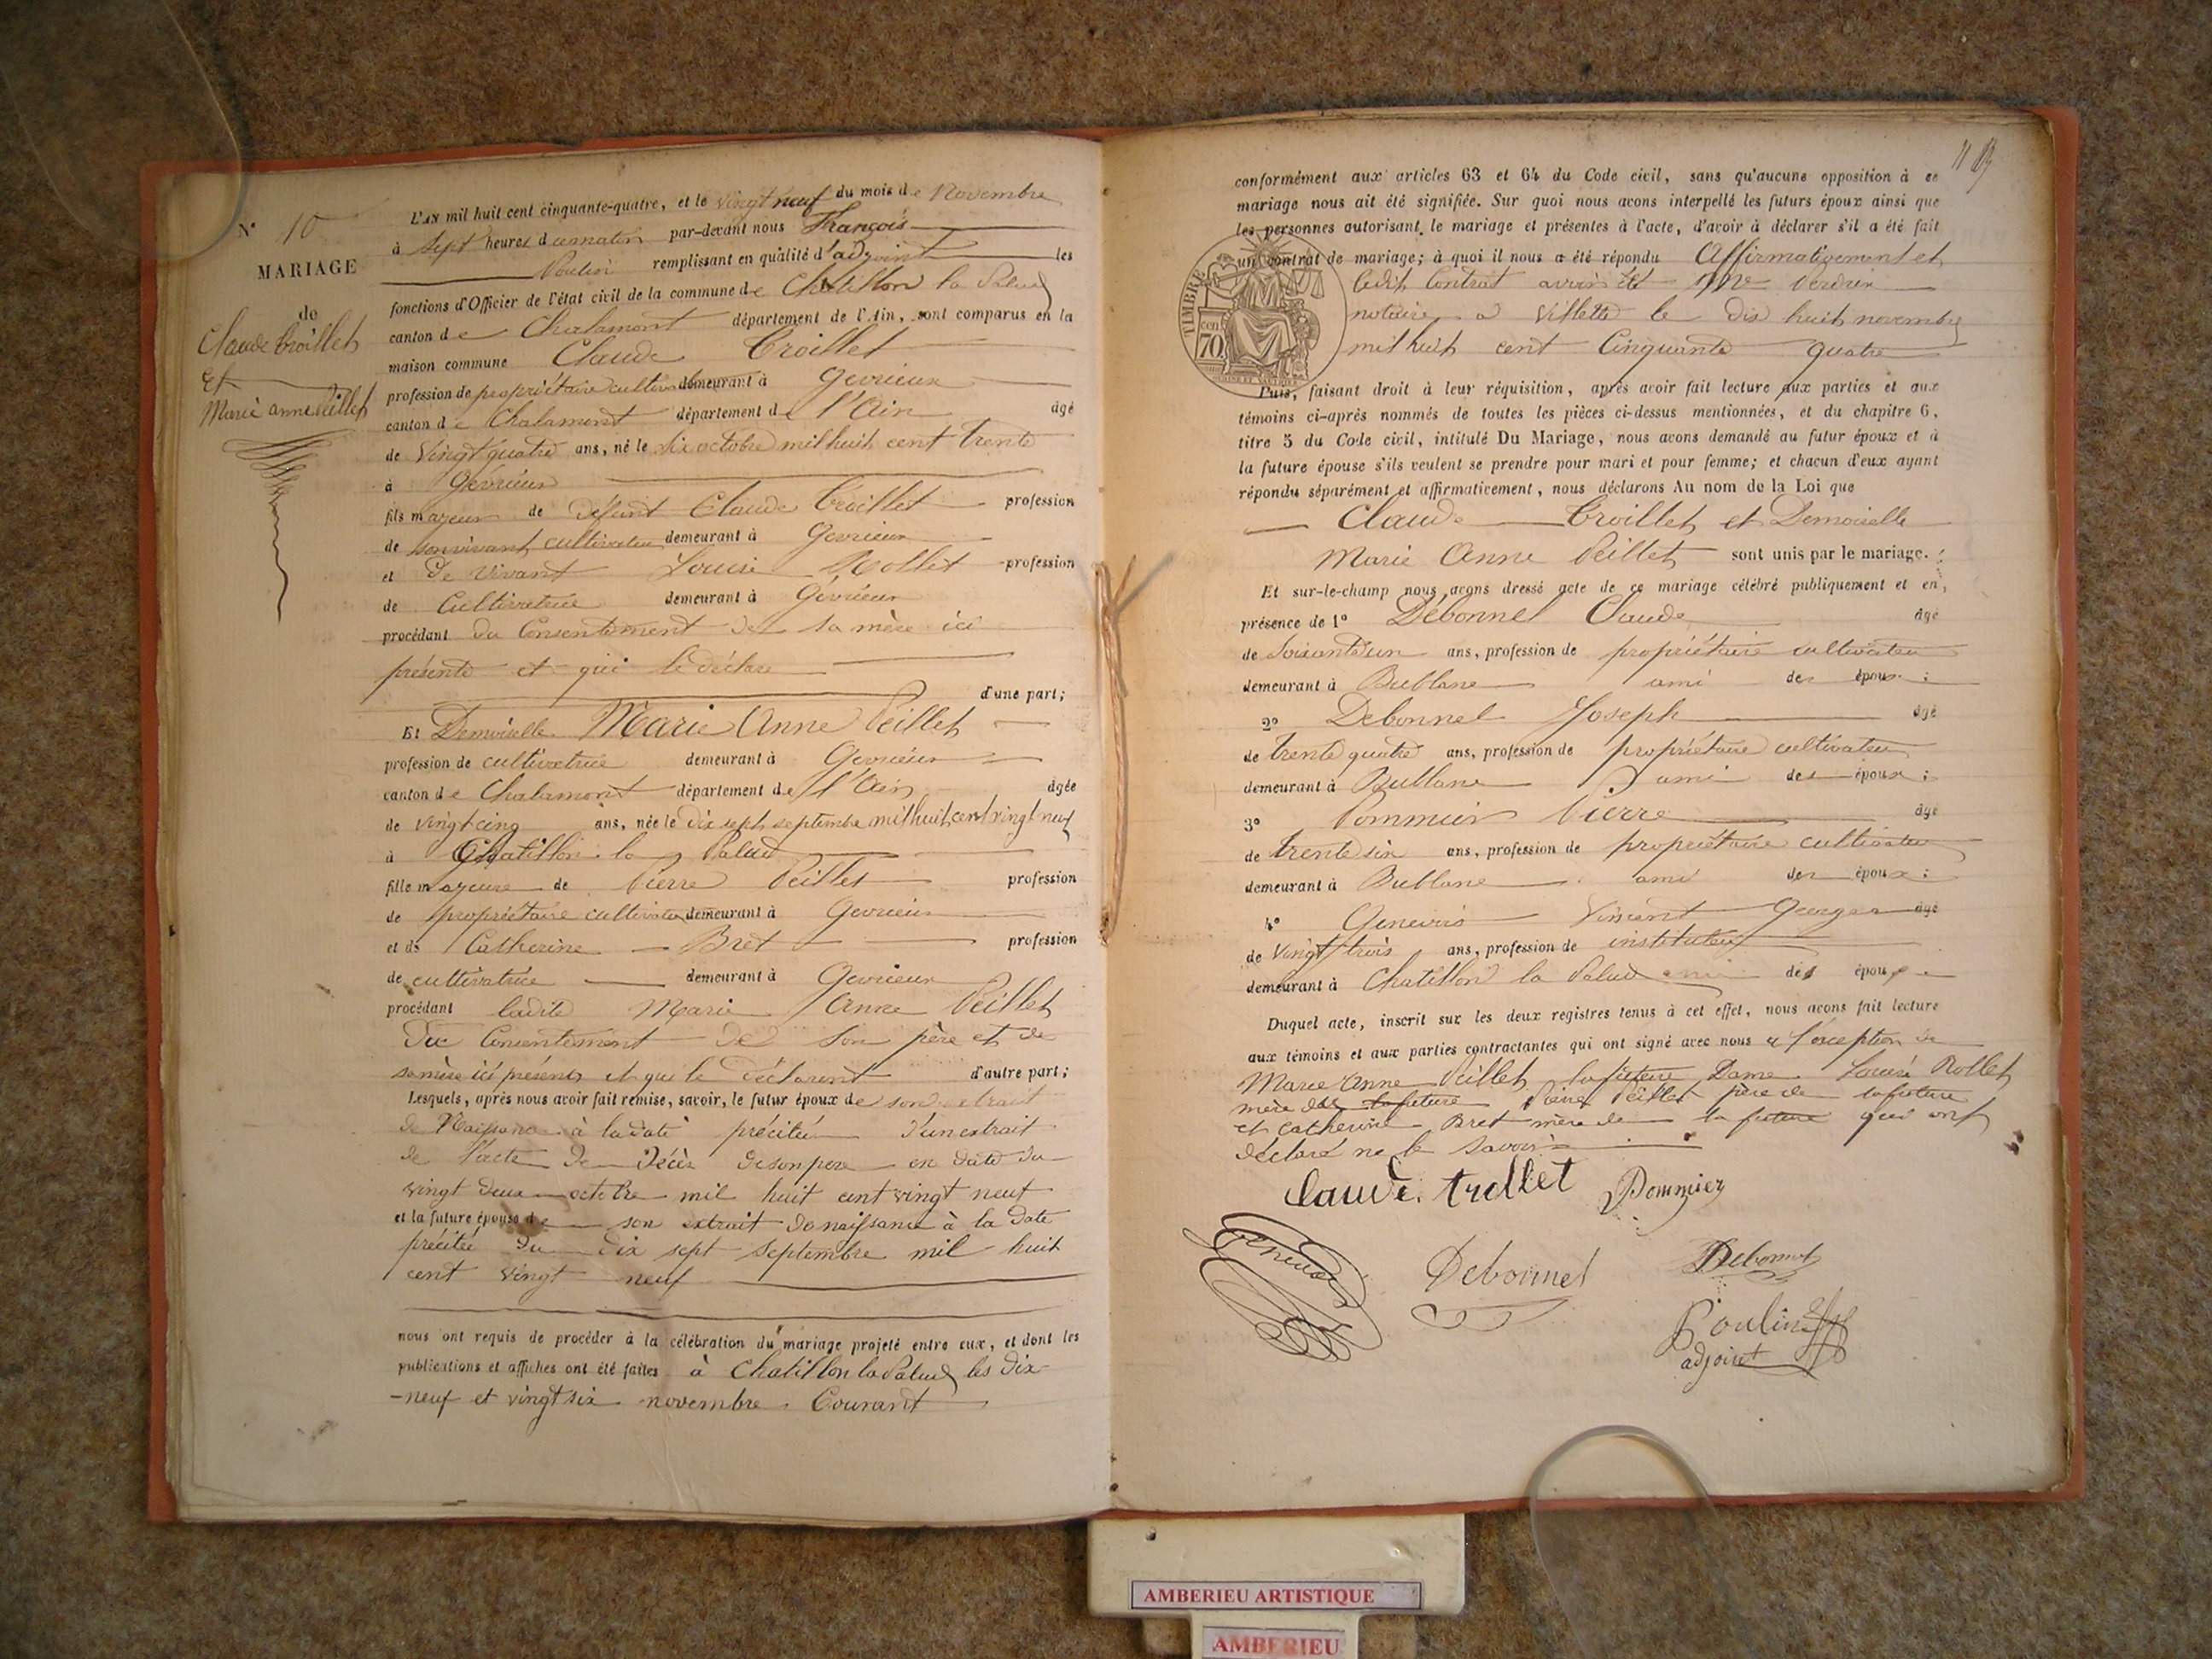 N° 10
MARIAGE
de
Claude Troillet
Et
Marie anne Peillet
L'AN mil huit cent cinquante-quatre, et le vingt neuf du mois de Novembre
à sept heures du matin par-devant nous François
Poulin remplissant en qualité d'adjoint les
fonctions d'Officier de l'état civil de la commune de Chatillon la Palud
canton de Chalamont département de l'Ain, sont comparus en la
maison commune Claude Troillet
profession de propriétaire cultivateur demeurant à Gevrieux
canton de Chalamont département de l'Ain âgé
de Vingt quatre ans, né le six octobre mil huit cent trente
à Gévrieux
fils mageur de défunt Claude Troillet profession
de son vivant cultivateur demeurant à Gevrieux
et de vivant Louise Rollet profession
de Cultivatrice demeurant à Gévrieux
procédant du Consentement de sa mère ici
présente et qui le déclare
d'une part;
Et Demoiselle Marie Anne Peillet
profession de cultivatrice demeurant à Gevrieux
canton de Chalamont département de l'Ain âgée
de vingt cinq ans, née le dix sept septembre mil huit cent vingt neuf
à Chatillon la Palud
fille mageure de Pierre Peillet profession
de propriétaire cultivateur demeurant à Gevrieux
et de Catherine Bret profession
de cultivatrice demeurant à Gevrieux
procédant ladite Marie Anne Peillet
Du Consentement de son père et de
sa mère ici présents et qui le déclarent d'autre part;
Lesquels, après nous avoir fait remise, savoir, le futur époux de son extrait
de Naissance à la date précitée d'un extrait
de l'acte de Décès de son pere en date du
vingt deux octobre mil huit cent vingt neuf
et la future épouse de son extrait de naissance à la date
précitée du dix sept Septembre mil huit
cent vingt neuf
nous ont requis de procéder à la célébration du mariage projeté entre eux, et dont les
publications et affiches ont été faites à Chatillon la Palud les dix
-neuf et vingt six novembre Courant
conformément aux articles 63 et 64 du Code civil, sans qu'aucune opposition à ce
mariage nous ait été signifiée. Sur quoi nous avons interpellé les futurs époux ainsi que
les personnes autorisant le mariage et présentes à l'acte, d'avoir à déclarer s'il a été fait
un contrat de mariage; à quoi il nous a été répondu Affirmativement et
ledit Contrat Me Verdun
notaire a Villette le dix huit novembre
mil huit cent Cinquante quatre
TIMBRE
70 cen
Puis, faisant droit à leur réquisition, après avoir fait lecture aux parties et aux
témoins ci-après nommés de toutes les pièces ci-dessus mentionnées, et du chapitre 6,
titre 5 du Code civil, intitulé Du Mariage, nous avons demandé au futur époux et à
la future épouse s'ils veulent se prendre pour mari et pour femme; et chacun d'eux ayant
répondu séparément et affirmativement, nous déclarons Au nom de la Loi que
Claude Troillet et Demoiselle
Marie Anne Peillet sont unis par le mariage.
Et sur-le-champ nous avons dressé acte de ce mariage célébré publiquement et en
présence de 1° Debonnel Claude âgé
de Soixante un ans, profession de propriétaire cultivateur
demeurant à Bublane ami des époux;
2° Debonnel Joseph âgé
de trente quatre ans, profession de propriétaire cultivateur
demeurant à Bublane ami des époux;
3° Pommier Pierre âgé
de trente six ans, profession de propriétaire cultivateur
demeurant à Bublane ami des époux;
4° Genevois Vincent Georges âgé
de Vingt trois ans, profession de instituteur
demeurant à Chatillon la Palud ami des époux
Duquel acte, inscrit sur les deux registres tenus à cet effet, nous avons fait lecture
aux témoins et aux parties contractantes qui ont signé avec nous a l'exception de
Marie Anne Peillet la future Dame Louise Rollet
mère du la future Pierre Peillet père de la future
et Catherine Bret mère de la future qui ont
déclaré ne le savoir
Claude trollet Pommier
Genevois Debonnel Debonnel
Poulin
adjoint
AMBERIEU ARTISTIQUE
AMBERIEU